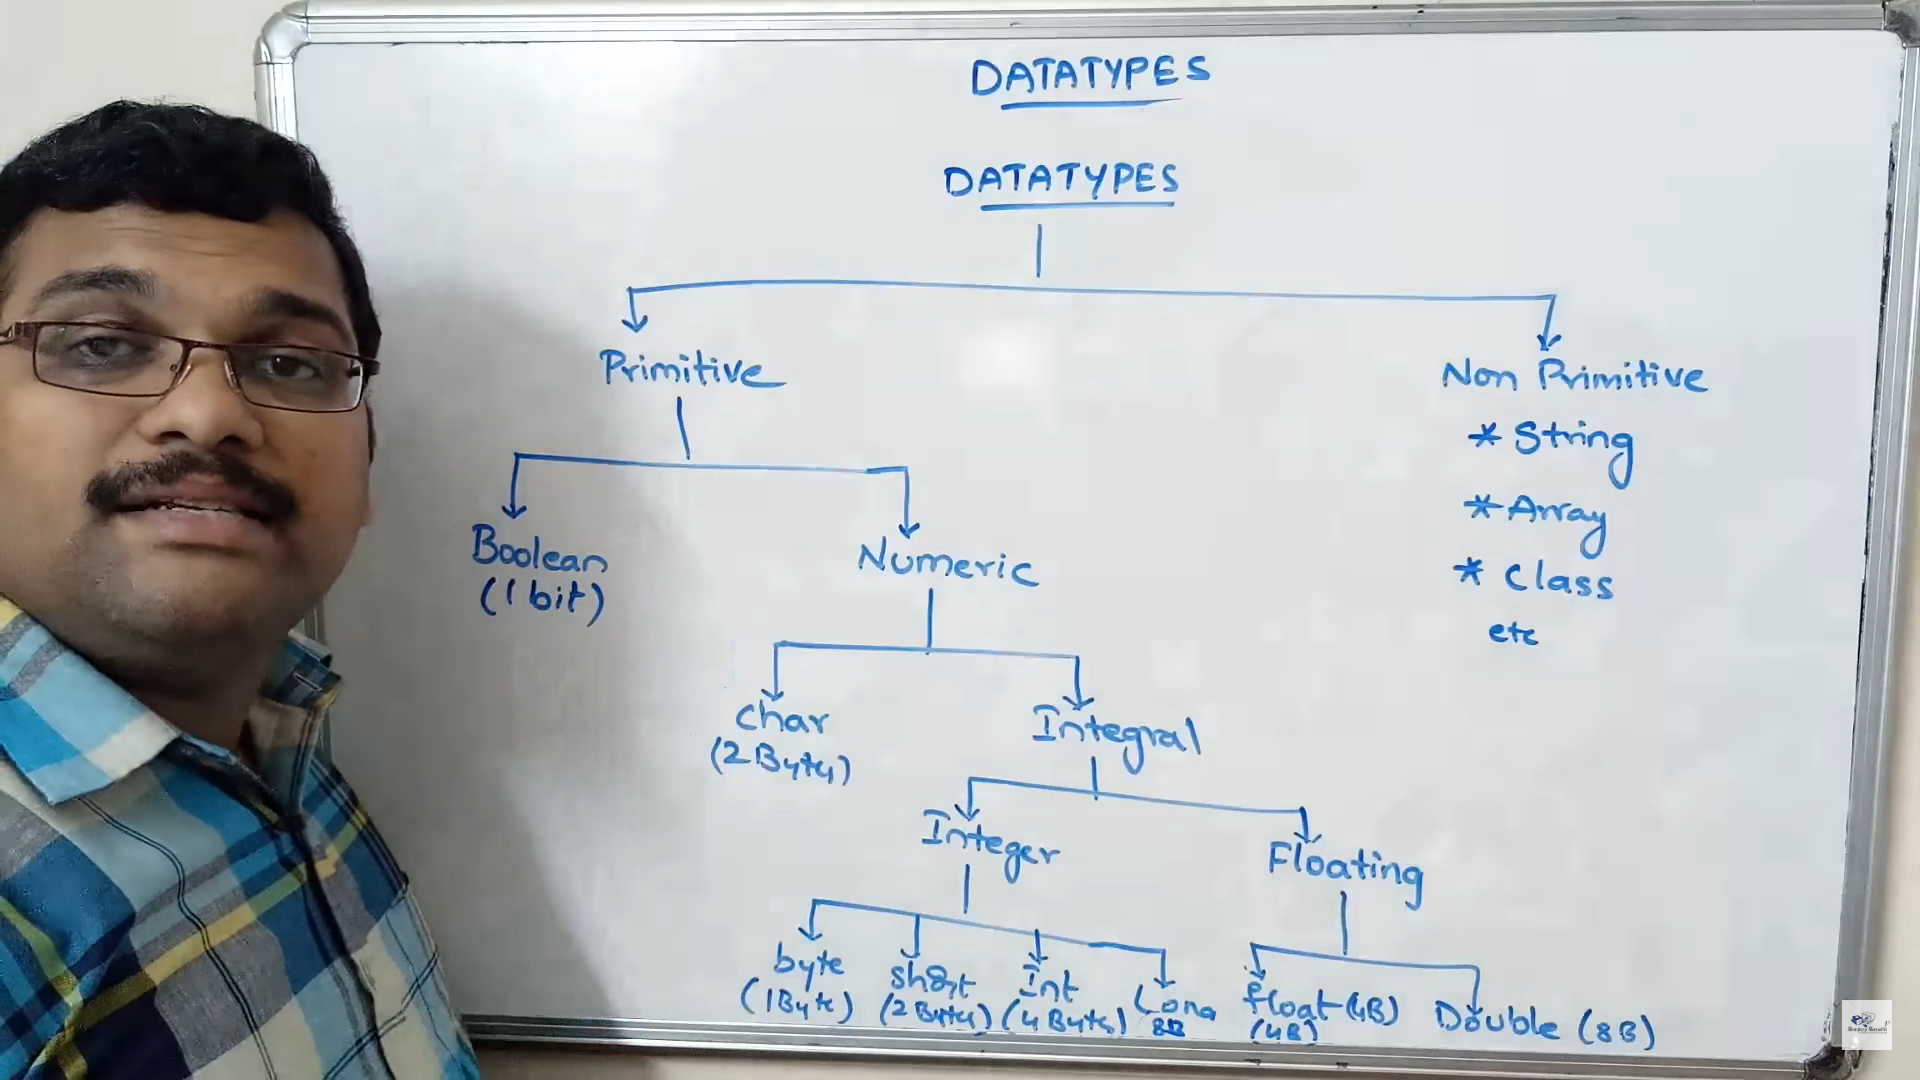 DATATYPES
DATATYPES
Primitive
Non Primitive
* String
* Array
* Class
etc
Boolean
(1 bit)
Numeric
char
(2 Bytes)
Integral
Integer
Floating
byte
(1 Byte)
short
(2 Bytes)
Int
(4 Bytes)
Long
8B
float (4B)
(4B)
Double (8B)